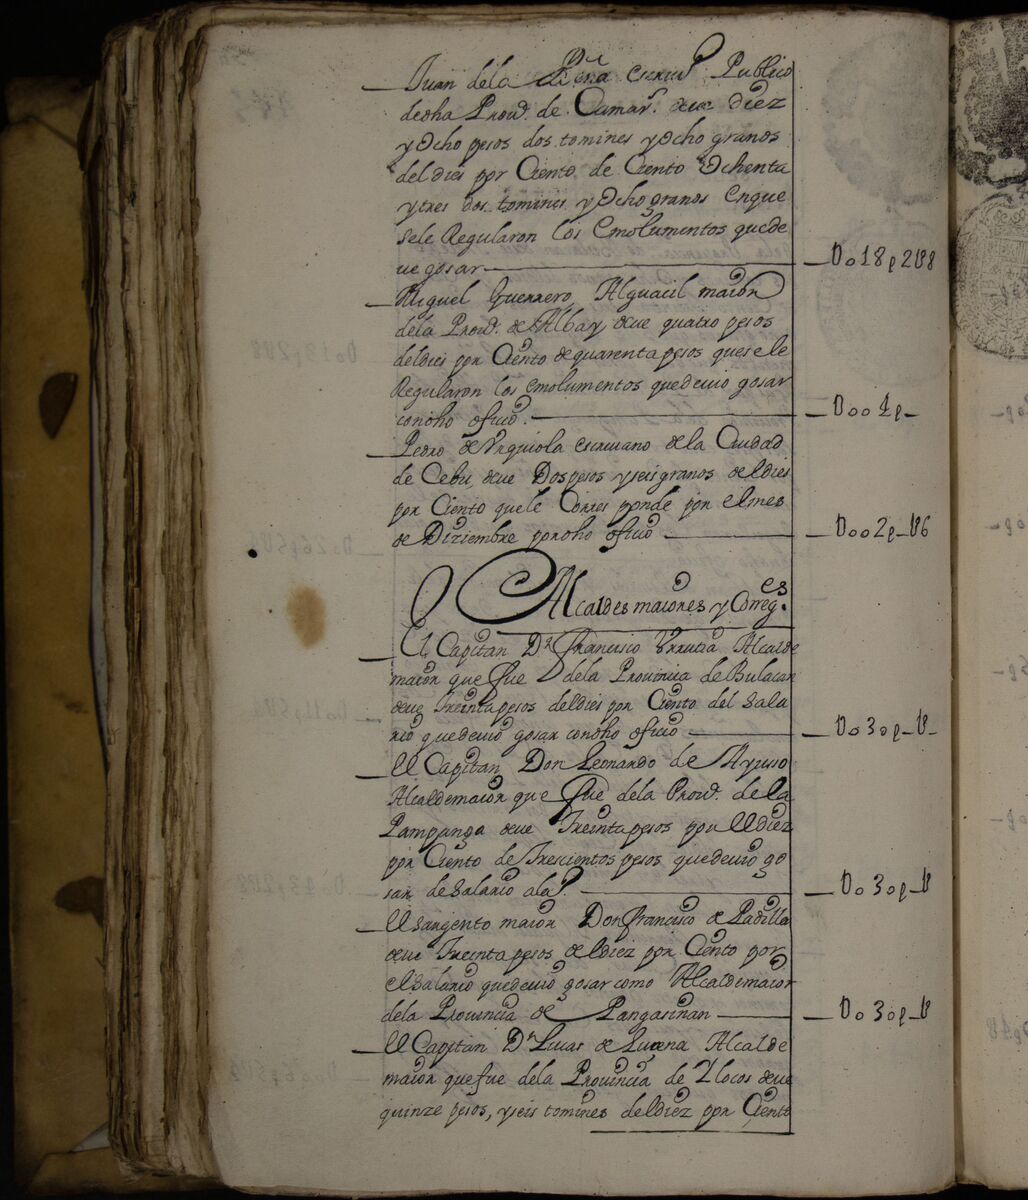 Juan dela Peña escriuᵒ Publico
desha Prouᵃ. de Camarˢ. deue diez
y Ocho pesos dos tomines y Ocho granos
del dies por Ciento de Ciento Ochenta
y tres dos tomines y Ocho granos enque
sele Regularon los Emolumentos quede
ue gosar — D o 18 p 2 U 8
Miguel Guerrero Alguacil maior
dela Prouᵃ. de Albay deue quatro pesos
del dies por Ciento de quarenta pesos que sele
Regularon los emolumentos que deuio gosar
condho oficio. — D o o 4 p _
Pedro de Vrquiola escriuano de la Ciudad
de Cebu deue Dos pesos y seis granos del dies
por Ciento que le Corresponde por el mes
de Diziembre pordho oficio — D o o 2 p _ U 6
Alcaldes maiores y Correg.ᵉˢ
El Capitan Dⁿ Francisco Vrrutia Alcalde
maior que fue dela Prouincia de Bulacan
deue Treinta pesos del dies por Ciento del Sala
rio que deuio gosar condho oficio — D o 3 o p _ U _
El Capitan Don Leonardo de Ayuso
Alcalde maior que fue dela Prouᵃ. de la
Pampanga deue Treinta pesos por El diez
por Ciento de Trescientos pesos que deuio go
sar de salario — D o 3 o p _ U
El sargento maior Don francisco de Padilla
deue Treinta pesos del diez por Ciento por
el Salario que deuio gosar como Alcalde maior
dela Prouincia de Pangasinan — D o 3 o p _ U
El Capitan Dⁿ Lucas de Lucena Alcalde
maior que fue dela Prouincia de Ylocos deue
quinze pesos, y seis tomines del diez por Ciento